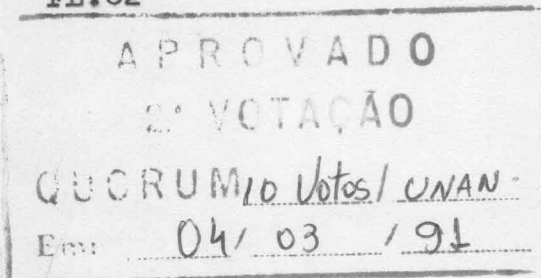 FL.02
APROVADO
2ª VOTAÇÃO
QUORUM 10 Votos/ UNAN.
Em: 04/ 03 / 91